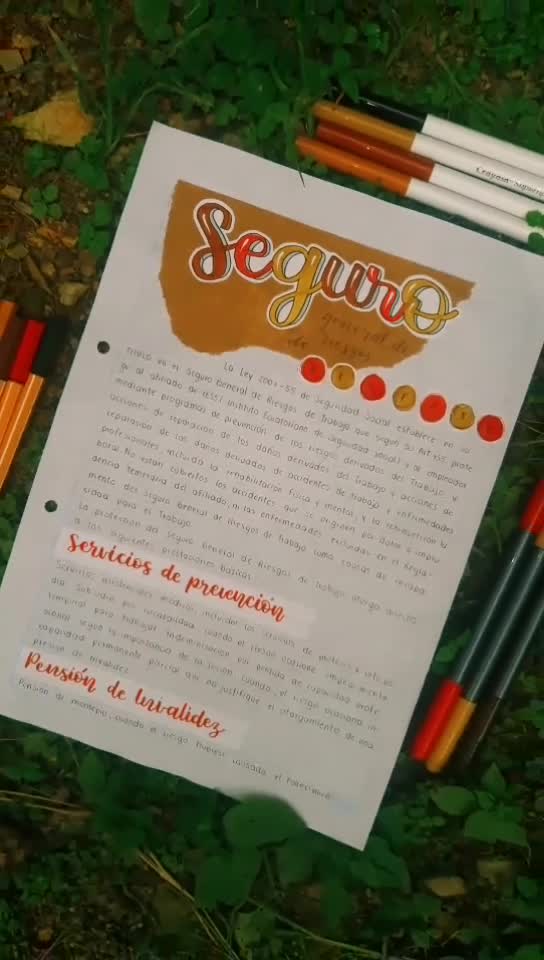 Crayola-Signature
Seguro
general de
riesgos
La Ley 2001-55 de Seguridad Social establece en su
titulo VII el Seguro General de Riesgos de Trabajo que según su Art 155 prote
ge al afiliado de IESS( Instituto Ecuatoriano de Seguridad Social) y al empleador
mediante programas de prevención de los riesgos derivados del Trabajo y
acciones de reparación de los daños derivados del Trabajo y acciones de
reparación de los daños derivados de accidentes de trabajo y enfermedades
profesionales, incluida la rehabilitación física y mental y la reinserción la
boral. No están cubiertos los accidentes que se originen por dolo o impru
dencia temeraria del afiliado, ni las enfermedades excluidas en el Regla-
mento del Seguro General de Riesgos de Trabajo como causas de incapa
cidad para el Trabajo.
La protección del Seguro General de Riesgos de Trabajo otorga derecho
a las siguientes prestaciones básicas
Servicios de prevención
Servicios asistenciales médicos, incluidos los servicios de
Subsidio por incapacidad cuando el riesgo ocasione impedimento
temporal para trabajar Indemnización por pérdida de capacidad profe-
sional según la importancia de la lesión, cuando el riesgo ocasiona in-
capacidad permanente parcial que no justifique el otorgamiento de una
pensión de invalidez
Pensión de Invalidez
Pensión de montepío, cuando el riesgo hubiese causado el